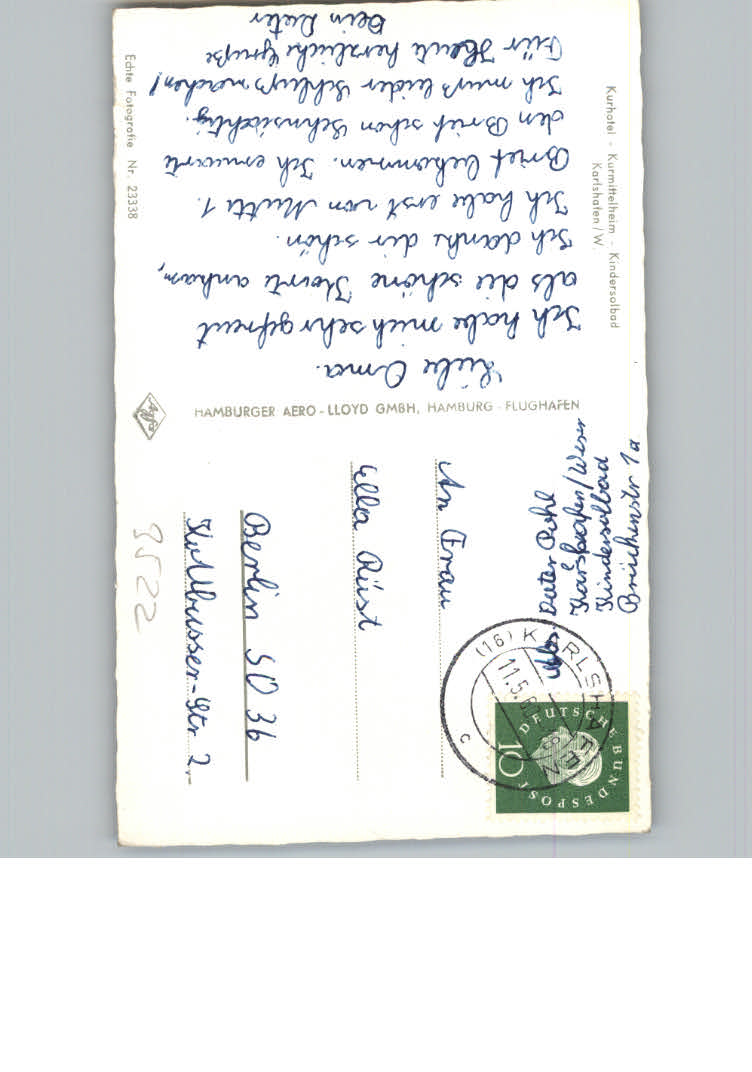 Kurhotel - Kurmittelheim - Kindersolbad
Karlshafen/W.
Liebe Oma.
Ich habe mich sehr gefreut
als die schöne Karte ankam,
Ich danke dir schön.
Ich habe erst von Mutti 1.
Brief bekommen. Ich erwarte
den Brief schon sehnsüchtig.
Ich muß leider Schluß machen!
Für Heute herzliche Grüße
Dein Dieter
Echte Fotografie Nr. 23338
HAMBURGER AERO-LLOYD GMBH, HAMBURG-FLUGHAFEN
Agfa
Abs. Dieter
Karlshafen/Weser
Kindersolbad
Brückenstr 1a
An Frau
Ella Rüst
Berlin SO 36
Kottbusser-Str 2.
9522
(16) KARLSHAFEN
11.5.60
c
DEUTSCHE BUNDESPOST
10